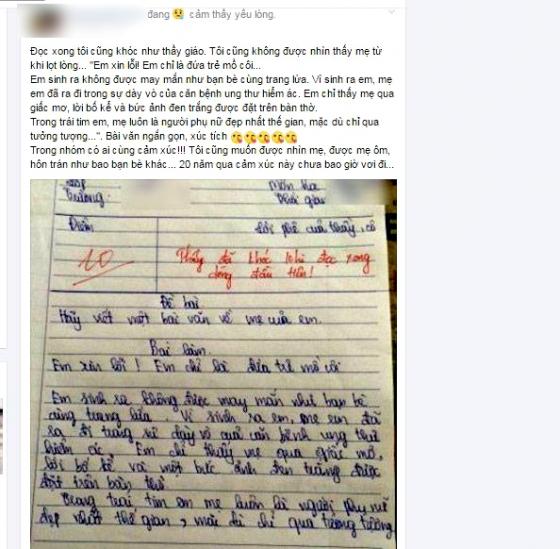 đang 😢 cảm thấy yếu lòng.
Đọc xong tôi cũng khóc như thầy giáo. Tôi cũng không được nhìn thấy mẹ từ
khi lọt lòng... "Em xin lỗi! Em chỉ là đứa trẻ mồ côi...
Em sinh ra không được may mắn như bạn bè cùng trang lứa. Vì sinh ra em, mẹ
em đã ra đi trong sự dày vò của căn bệnh ung thư hiểm ác. Em chỉ thấy mẹ qua
giấc mơ, lời bố kể và bức ảnh đen trắng được đặt trên bàn thờ.
Trong trái tim em, mẹ luôn là người phụ nữ đẹp nhất thế gian, mặc dù chỉ qua
tưởng tượng...". Bài văn ngắn gọn, xúc tích 😢😢😢😢😢
Trong nhóm có ai cùng cảm xúc!!! Tôi cũng muốn được nhìn mẹ, được mẹ ôm,
hôn trán như bao bạn bè khác... 20 năm qua cảm xúc này chưa bao giờ vơi đi...
Lớp
Trường:
Môn
Thời gian
Điểm
Lời phê của thầy, cô
10
Thầy đã khóc khi đọc xong
dòng đầu tiên!
Đề bài
Hãy viết một bài văn về mẹ của em.
Bài làm
Em xin lỗi! Em chỉ là đứa trẻ mồ côi
Em sinh ra không được may mắn như bạn bè
cùng trang lứa. Vì sinh ra em, mẹ em đã
ra đi trong sự dày vò của căn bệnh ung thư
hiểm ác. Em chỉ thấy mẹ qua giấc mơ,
lời bố kể và một bức ảnh đen trắng được
đặt trên bàn thờ
Trong trái tim em mẹ luôn là người phụ nữ
đẹp nhất thế gian, mặc dù chỉ qua tưởng tượng